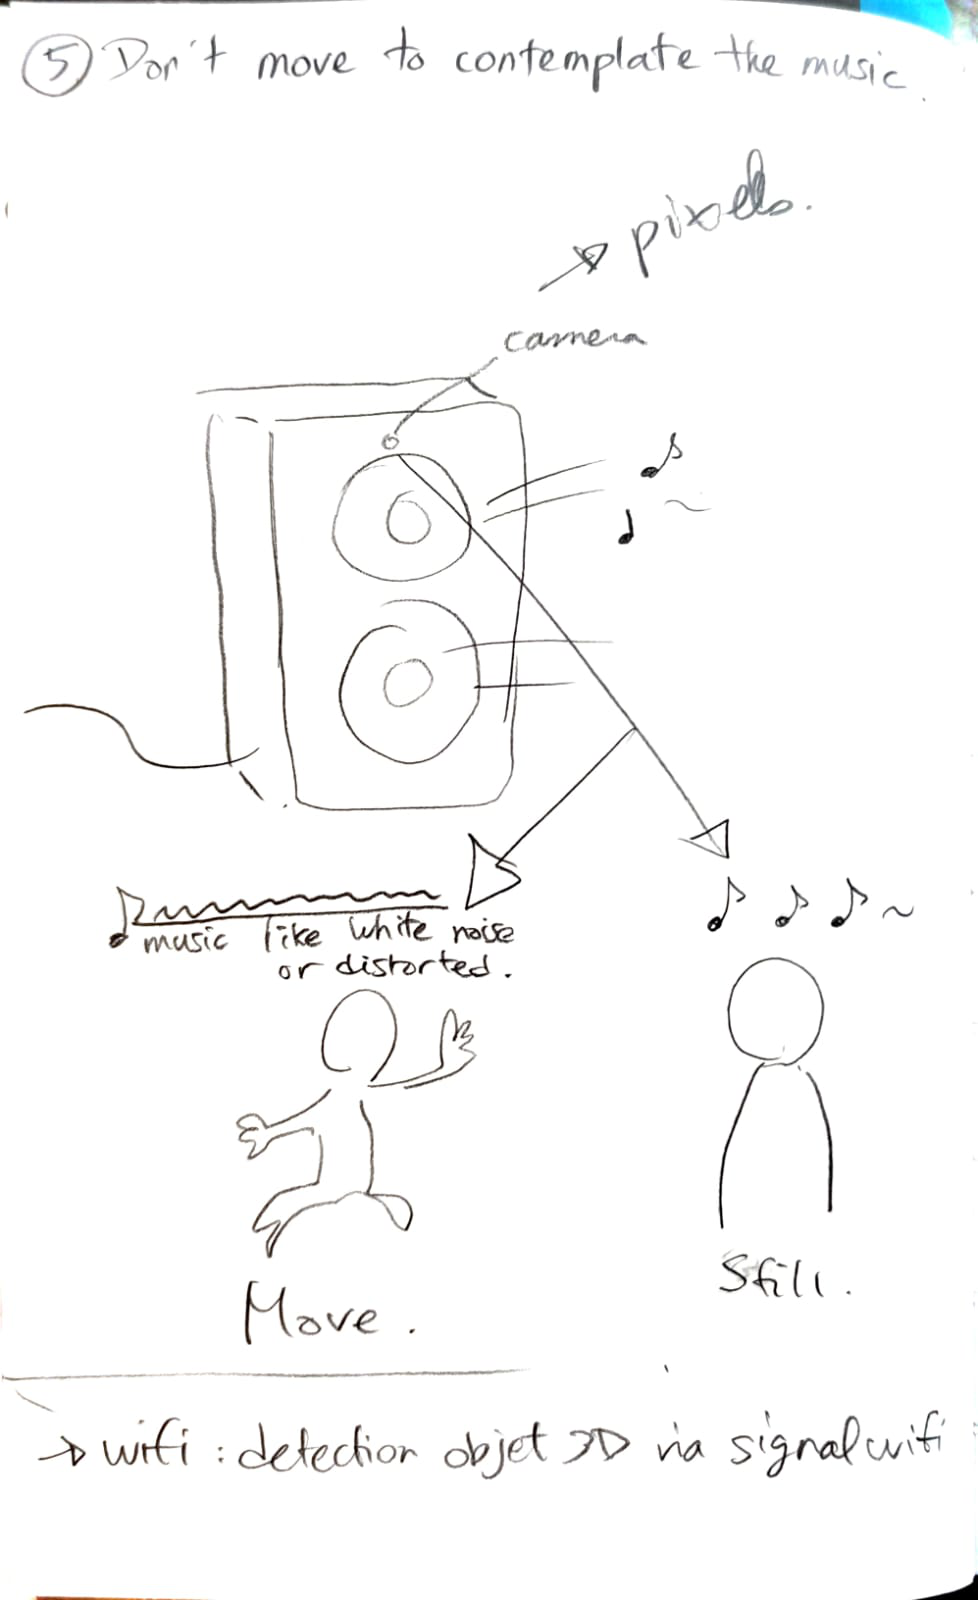 ⑤ Don't move to contemplate the music.
→ pixels.
camera
music like white noise
or distorted.
Move.
Still.
→ wifi : detection objet 3D via signal wifi